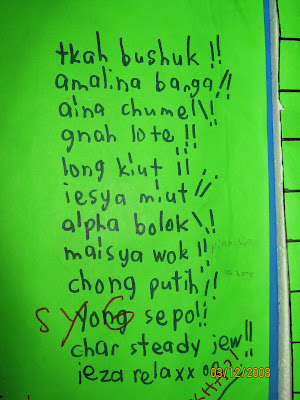 tkah bushuk !!
amalina banga !!
aina chumel \!
gnah lote !!
long kiut !!
iesya miut !!
alpha bolok \!
maisya wok !!
chong putih !!
syg
yong sepol!
char steady jew!!
jeza relaxx
03/12/2008